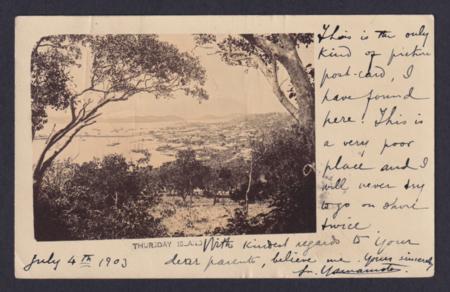 This is the only
kind of picture
post-card, I
have found
here! This is
a very poor
place and I
will never try
to go on shore
twice.
THURSDAY ISLAND
With kindest regards to your
dear parents, believe me. Yours sincerely
July 4th 1903
Yamamoto.